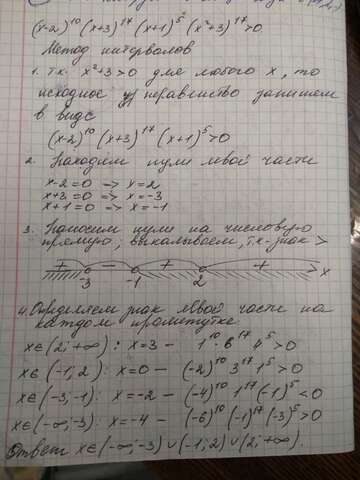 (x-2)¹⁰(x+3)¹⁷(x+1)⁵(x²+3)¹⁷>0
Метод интервалов
1. т.к. x²+3>0 для любого x, то
исходное неравенство запишем
в виде
(x-2)¹⁰(x+3)¹⁷(x+1)⁵>0
2. Находим нули левой части
x-2=0 => x=2
x+3=0 => x=-3
x+1=0 => x=-1
3. Наносим нули на числовую
прямую, выкалываем, т.к. знак >
+ - + +
3 -1 2 x
4. Определяем знак левой части на
каждом промежутке
x∈(2;+∞): x=3 - 1¹⁰·6¹⁷ 4⁵>0
x∈(-1;2): x=0 - (-2)¹⁰ 3¹⁷ 1⁵>0
x∈(-3;-1): x=-2 - (-4)¹⁰ 1¹⁷(-1)⁵<0
x∈(-∞;-3): x=-4 - (-6)¹⁰(-1)¹⁷(-3)⁵>0
Ответ x∈(-∞;-3)∪(-1;2)∪(2;+∞).